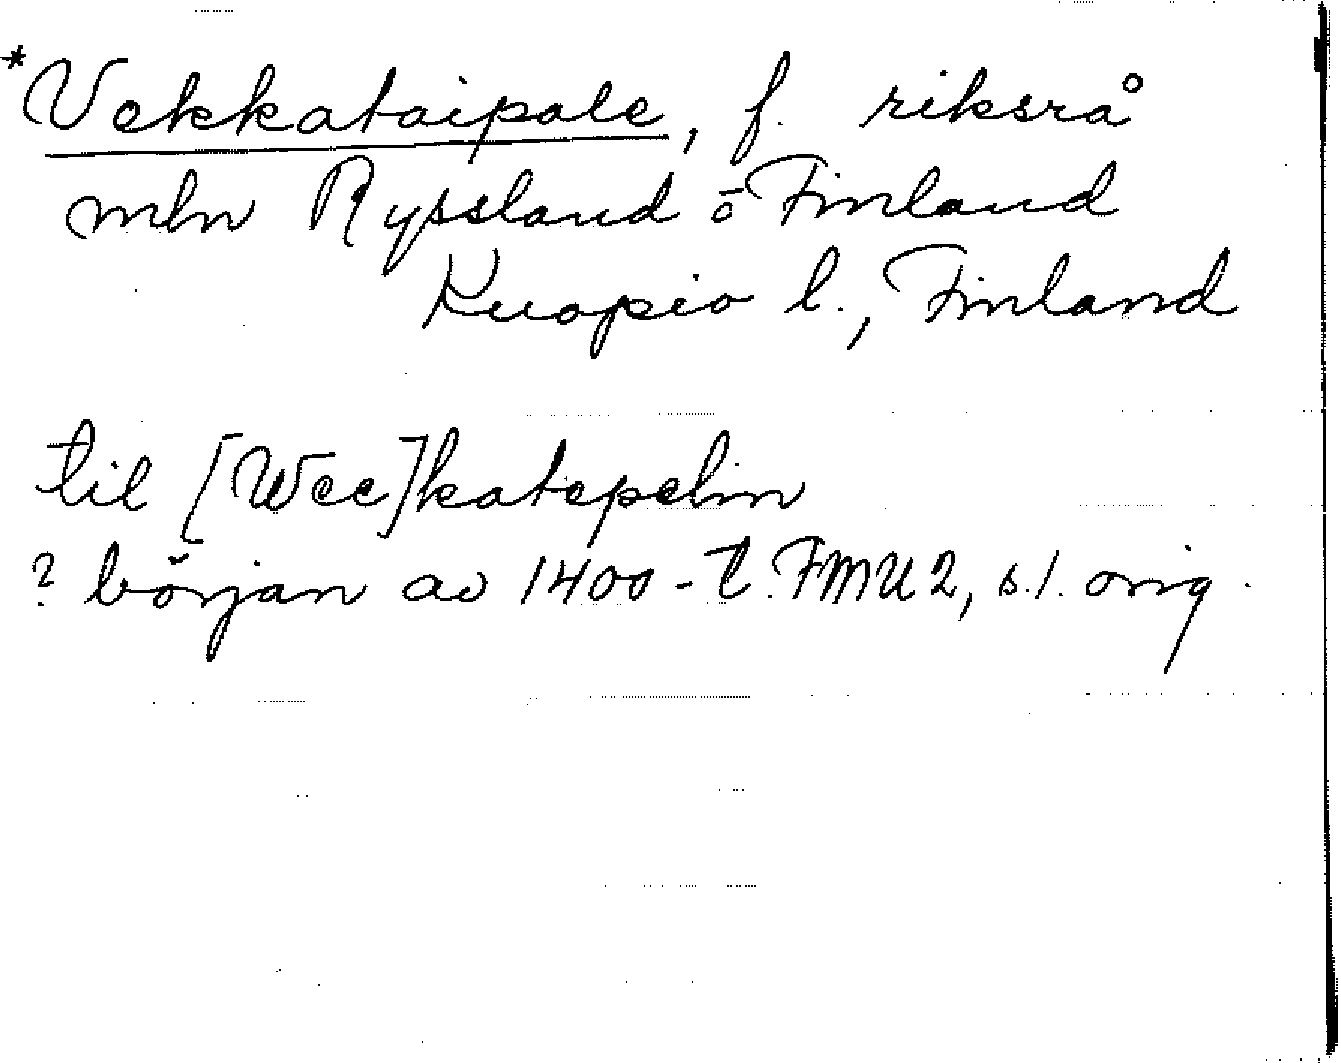 *Vekkataipale, f. riksrå
mln Ryssland o Finland
Kuopio l., Finland
til [Wee]katepelin
? början av 1400-t. FMU 2, s. 1. orig.